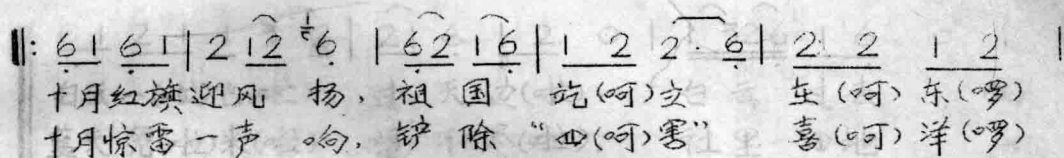 ‖: 6 1 6 1 | 2 12 6 | 62 16 | 1 2 2·6 | 2 2 1 2 |
十月红旗迎风 扬, 祖 国 屹(呵)立 在(呵)东(啰)
十月惊雷一声 响, 铲 除 “四(呵)害” 喜(呵)洋(啰)